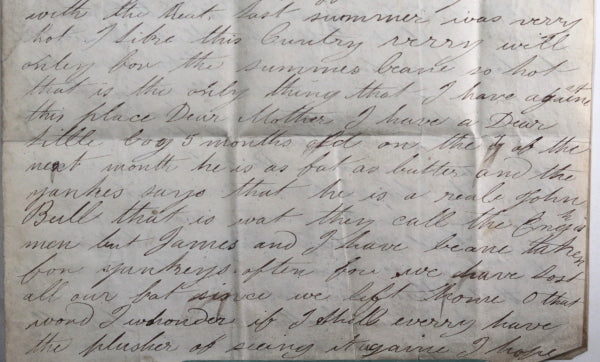 with the heat. last summer was verry
hot I like this Cuntry verry well
onley for the summer beane so hot
that is the only thing that I have against
this place Dear Mother I have a Dear
little boy 5 months old on the of the
next month he is as fat as butter and the
yankes says that he is a reale John
Bull that is wat they call the English
men but James and I have beane taken
for yankeys often for we have lost
all our fat since we left home O that
word I whonder if I shall everry have
the plusher of seeing it agane I hope